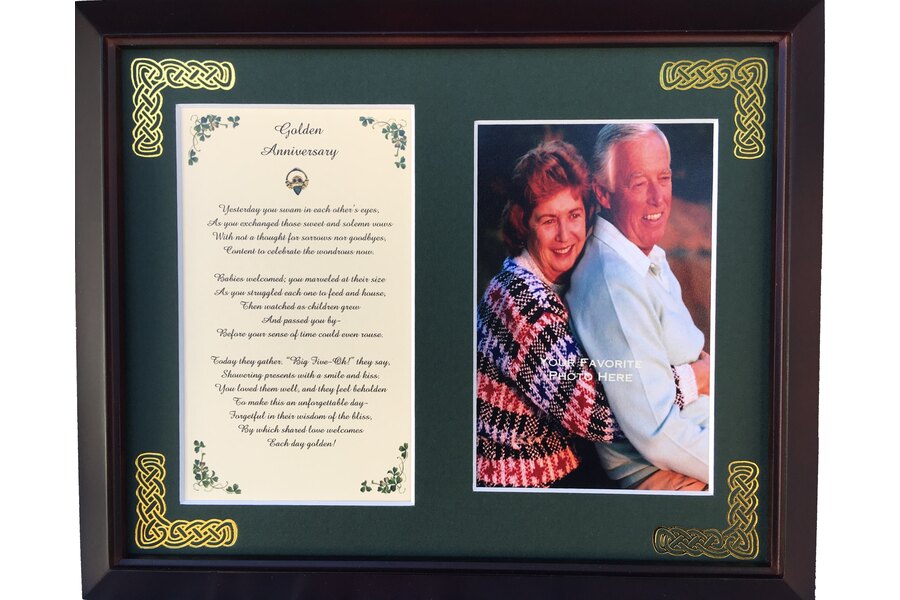 Golden
Anniversary
Yesterday you swam in each other's eyes,
As you exchanged those sweet and solemn vows
With not a thought for sorrows nor goodbyes,
Content to celebrate the wondrous now.
Babies welcomed; you marveled at their size
As you struggled each one to feed and house,
Then watched as children grew
And passed you by-
Before your sense of time could even rouse.
Today they gather. "Big Five-Oh!" they say,
Showering presents with a smile and kiss.
You loved them well, and they feel beholden
To make this an unforgettable day-
Forgetful in their wisdom of the bliss,
By which shared love welcomes
Each day golden!
Your Favorite
Photo Here